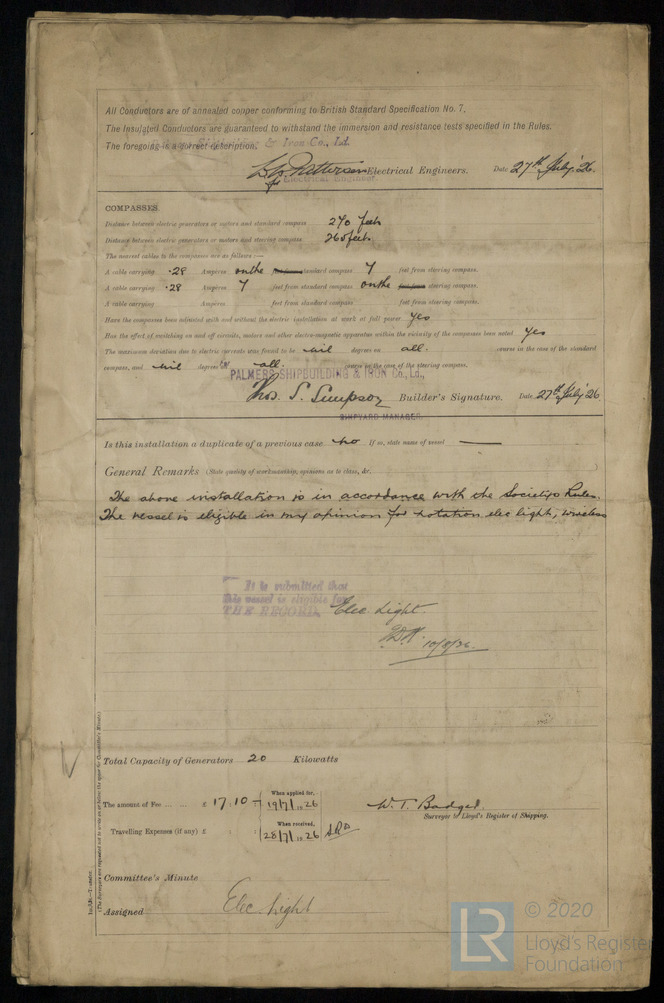 All Conductors are of annealed copper conforming to British Standard Specification No. 7.
The Insulated Conductors are guaranteed to withstand the immersion and resistance tests specified in the Rules.
& Iron Co., Ld.
The foregoing is a correct description.
Patterson Electrical Engineers. Date 27th July '26.
for Electrical Engineer
COMPASSES.
Distance between electric generators or motors and standard compass 270 feet
Distance between electric generators or motors and steering compass 260 feet
The nearest cables to the compasses are as follows:—
A cable carrying .28 Ampères on the standard compass 7 feet from steering compass.
A cable carrying .28 Ampères 7 feet from standard compass on the steering compass.
A cable carrying Ampères feet from standard compass feet from steering compass.
Have the compasses been adjusted with and without the electric installation at work at full power yes
Has the effect of switching on and off circuits, motors and other electro-magnetic apparatus within the vicinity of the compasses been noted yes
The maximum deviation due to electric currents was found to be nil degrees on all. course in the case of the standard
compass, and nil degrees on all. course in the case of the steering compass.
PALMERS SHIPBUILDING & IRON Co., Ld.,
Thos. S. Simpson Builder's Signature. Date 27th July '26
SHIPYARD MANAGER.
Is this installation a duplicate of a previous case No If so, state name of vessel —
General Remarks (State quality of workmanship, opinions as to class, &c.
The above installation is in accordance with the Societys Rules.
The vessel is eligible in my opinion for notation elec light, wireless
It is submitted that
this vessel is eligible for
THE RECORD. Elec. Light.
10/8/26.
Total Capacity of Generators 20 Kilowatts
The amount of Fee ... ... £ 17.10 — When applied for, 19/7/1926
W. T. Badger
Surveyor to Lloyd's Register of Shipping.
Travelling Expenses (if any) £ When received, 28/7/1926
Committee's Minute
Assigned Elec. Light
LR
© 2020
Lloyd's Register
Foundation